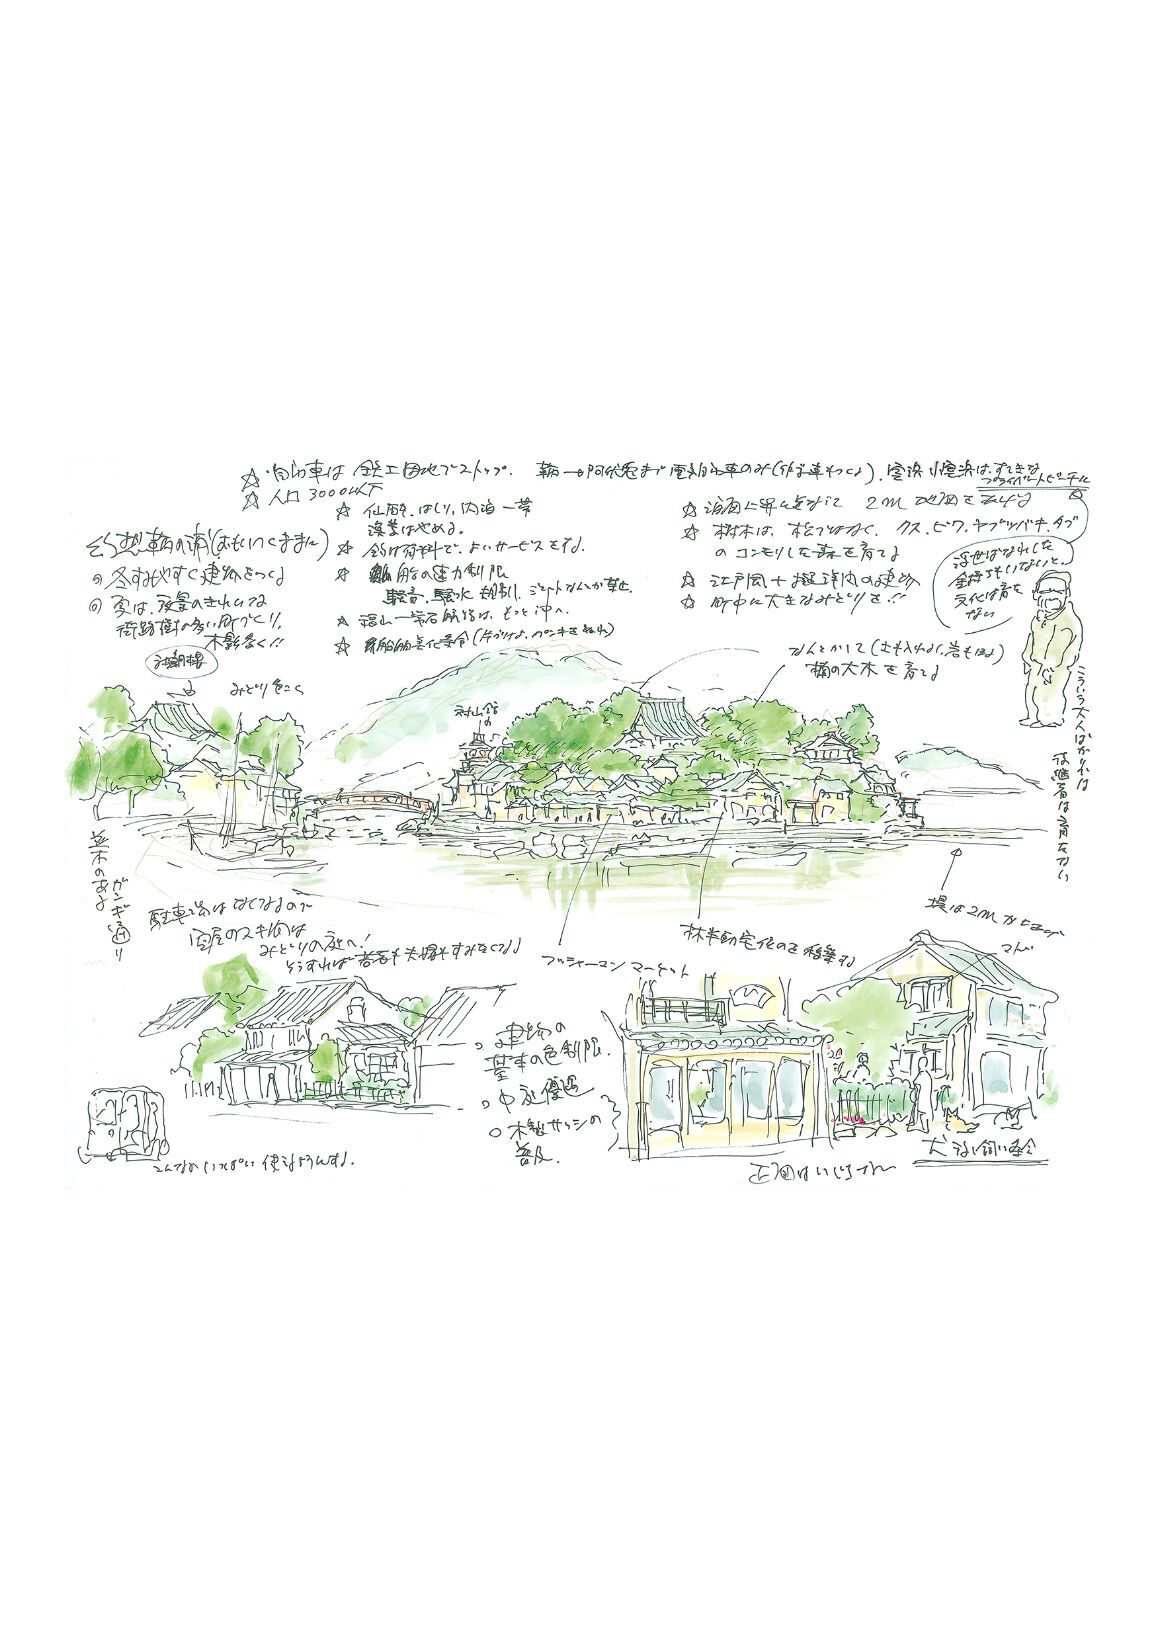 ☆ 自動車は 鉄工団地でストップ. 鞆→阿伏兎まで電気自動車のみ(作る車もつくる). 室浜 小室浜は、すてきな
プライベートビーチに
☆ 人口 3000以下
空想鞆の浦(おもいつくままに)
◎ 冬すみやすく建物をつくる
◎ 夏は、夜景のきれいな
街路樹の多い町づくり.
木影多く!!
☆ 仙酔, はしり, 内海一帯
漁業はやめる。
☆ 釣は有料で、よいサービスをする.
☆ 船の速力制限
騒音、 規制. ジェットなんとか禁止
☆ 福山ー常石航路は、もっと沖へ.
☆ 船舶美化条令(片づけよ、ペンキをぬれ)
☆ 海面上昇に 2m 地面を上げる
☆ 樹木は、松ではなく、クス、ビワ、ヤブツバキ、タブ
のコンモリした森を育てる
☆ 江戸風+擬洋風の建物
☆ 町中に大きなみどりを!!
浮世ばなれした
金持ちもいないと、
文化は育た
ない
こういう大人ばかりでは
は育たない
なんとかして(土も入れよ、岩もほれ)
楠の大木を育てる
みどり色こく
並木のある
ガンギ通り
駐車場はなくなるので
空屋のスキ間は
みどりの庭へ!
そうすれば若者も夫婦もすみたくなる
フィッシャーマン マーケット
林半助宅他のを移築する
堤は2m
まで
○ 建物の
基本の色制限.
○ 中庭優遇
○ 木製サッシの
普及.
こんなのいっぱい 使うようにする.
正面はいじらない
犬 なし飼い条令